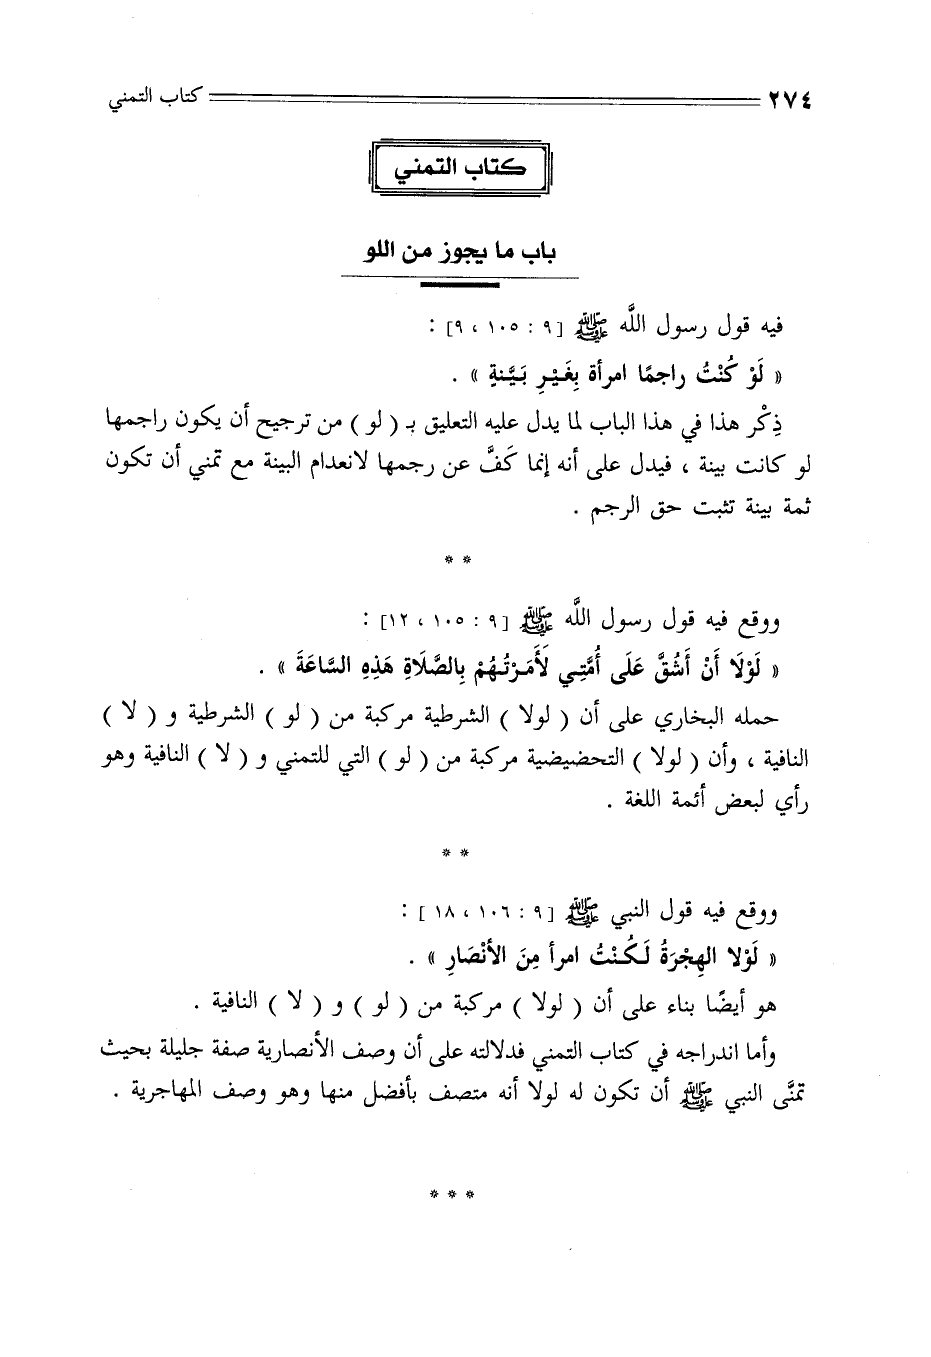 ٢٧٤ كتاب التمني
كتاب التمني
باب ما يجوز من اللو
فيه قول رسول اللَّه ﷺ [ ٩ : ١٠٥ ، ٩] :
« لَوْ كُنْتُ راجمًا امرأة بِغَيْرِ بَيَّنةٍ » .
ذِكْر هذا في هذا الباب لما يدل عليه التعليق بـ ( لو ) من ترجيح أن يكون راجمها
لو كانت بينة ، فيدل على أنه إنما كَفَّ عن رجمها لانعدام البينة مع تمني أن تكون
ثمة بينة تثبت حق الرجم .
* *
ووقع فيه قول رسول اللَّه ﷺ [ ٩ : ١٠٥ ، ١٢] :
« لَوْلَا أَنْ أَشُقَّ عَلَى أُمَّتِي لَأَمَرْتُهُمْ بِالصَّلَاةِ هَذِهِ السَّاعَةَ » .
حمله البخاري على أن ( لولا ) الشرطية مركبة من ( لو ) الشرطية و ( لا )
النافية ، وأن ( لولا ) التحضيضية مركبة من ( لو ) التي للتمني و ( لا ) النافية وهو
رأي لبعض أئمة اللغة .
* *
ووقع فيه قول النبي ﷺ [ ٩ : ١٠٦ ، ١٨ ] :
« لَوْلا الهِجْرَةُ لَكُنْتُ امرأ مِنَ الأنْصَارِ » .
هو أيضًا بناء على أن ( لولا ) مركبة من ( لو ) و ( لا ) النافية .
وأما اندراجه في كتاب التمني فدلالته على أن وصف الأنصارية صفة جليلة بحيث
تمنَّى النبي ﷺ أن تكون له لولا أنه متصف بأفضل منها وهو وصف المهاجرية .
* * *